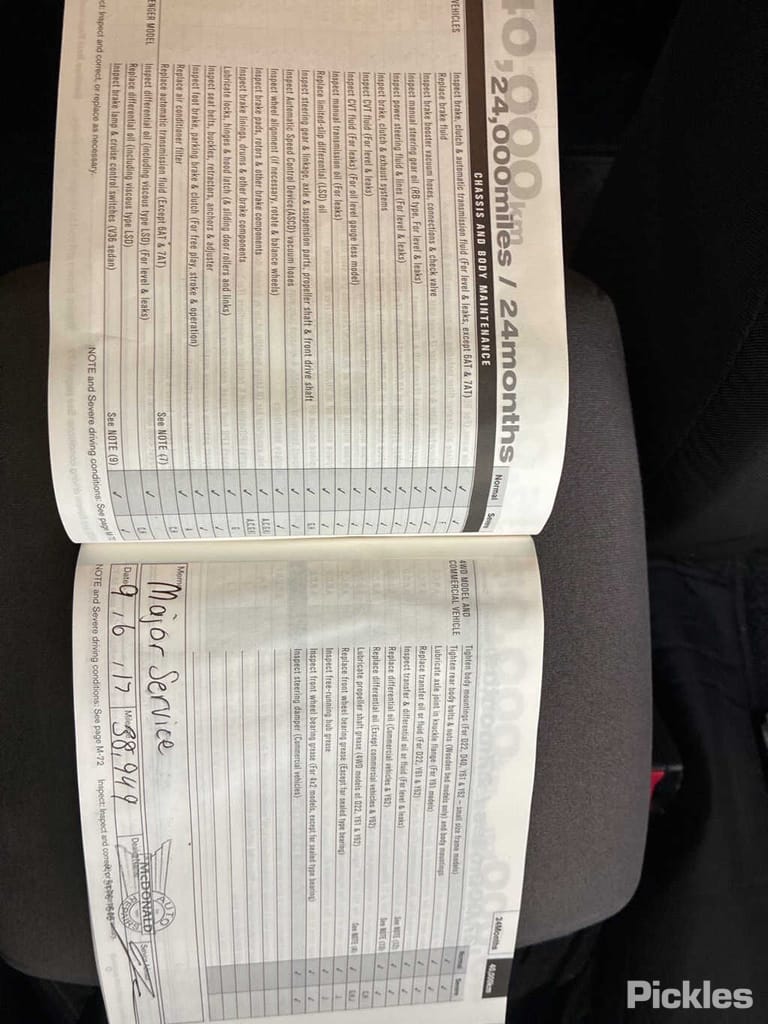 40,000km
24,000miles / 24months
CHASSIS AND BODY MAINTENANCE
Normal
VEHICLES
Inspect brake, clutch & automatic transmission fluid (For level & leaks, except 6AT & 7AT)
Replace brake fluid
Inspect brake booster vacuum hoses, connections & check valve
Inspect manual steering gear oil (RB type, For level & leaks)
Inspect power steering fluid & lines (For level & leaks)
Inspect brake, clutch & exhaust systems
Inspect CVT fluid (For level & leaks)
Inspect CVT fluid (For leaks) (For oil level gauge less model)
Inspect manual transmission oil (For leaks)
Replace limited-slip differential (LSD) oil
Inspect steering gear & linkage, axle & suspension parts, propeller shaft & front drive shaft
Inspect Automatic Speed Control Device(ASCD) vacuum hoses
Inspect wheel alignment (if necessary, rotate & balance wheels)
Inspect brake pads, rotors & other brake components
Inspect brake linings, drums & other brake components
Lubricate locks, hinges & hood latch (& sliding door rollers and links)
Inspect seat belts, buckles, retractors, anchors & adjuster
Inspect foot brake, parking brake & clutch (For free play, stroke & operation)
Replace air conditioner filter
Replace automatic transmission fluid (Except 6AT & 7AT) See NOTE (7)
ENGER MODEL
Inspect differential oil (including viscous type LSD) (For level & leaks)
Replace differential oil (including viscous type LSD)
Inspect brake lamp & cruise control switches (V36 sedan) See NOTE (9)
ct: Inspect and correct, or replace as necessary. NOTE and Severe driving conditions: See page
24Months 40,000km
Normal Severe
4WD MODEL AND
COMMERCIAL VEHICLE
Tighten body mountings (For D22, D40, Y61 & Y62 – small size frame models)
Tighten rear body bolts & nuts (Wooden bed models only) and body mountings
Lubricate axle joint in knuckle flange (For Y61 models)
Replace transfer oil or fluid (For D22, Y61 & Y62)
Inspect transfer & differential oil or fluid (For level & leaks)
Replace differential oil (Commercial vehicles & Y62)
Replace differential oil (Except commercial vehicles & Y62)
Lubricate propeller shaft grease (4WD models of D22, Y61 & Y62)
Replace front wheel bearing grease (Except for sealed type bearing)
Inspect free-running hub grease
Inspect front wheel bearing grease (For 4x2 models, except for sealed type bearing)
Inspect steering damper (Commercial vehicles)
Memo
Major Service
Date 9, 6, 17 38,949
McDONALD
AUTO
REPAIRS
NOTE and Severe driving conditions: See page M-72 Inspect: Inspect and correct,
Pickles